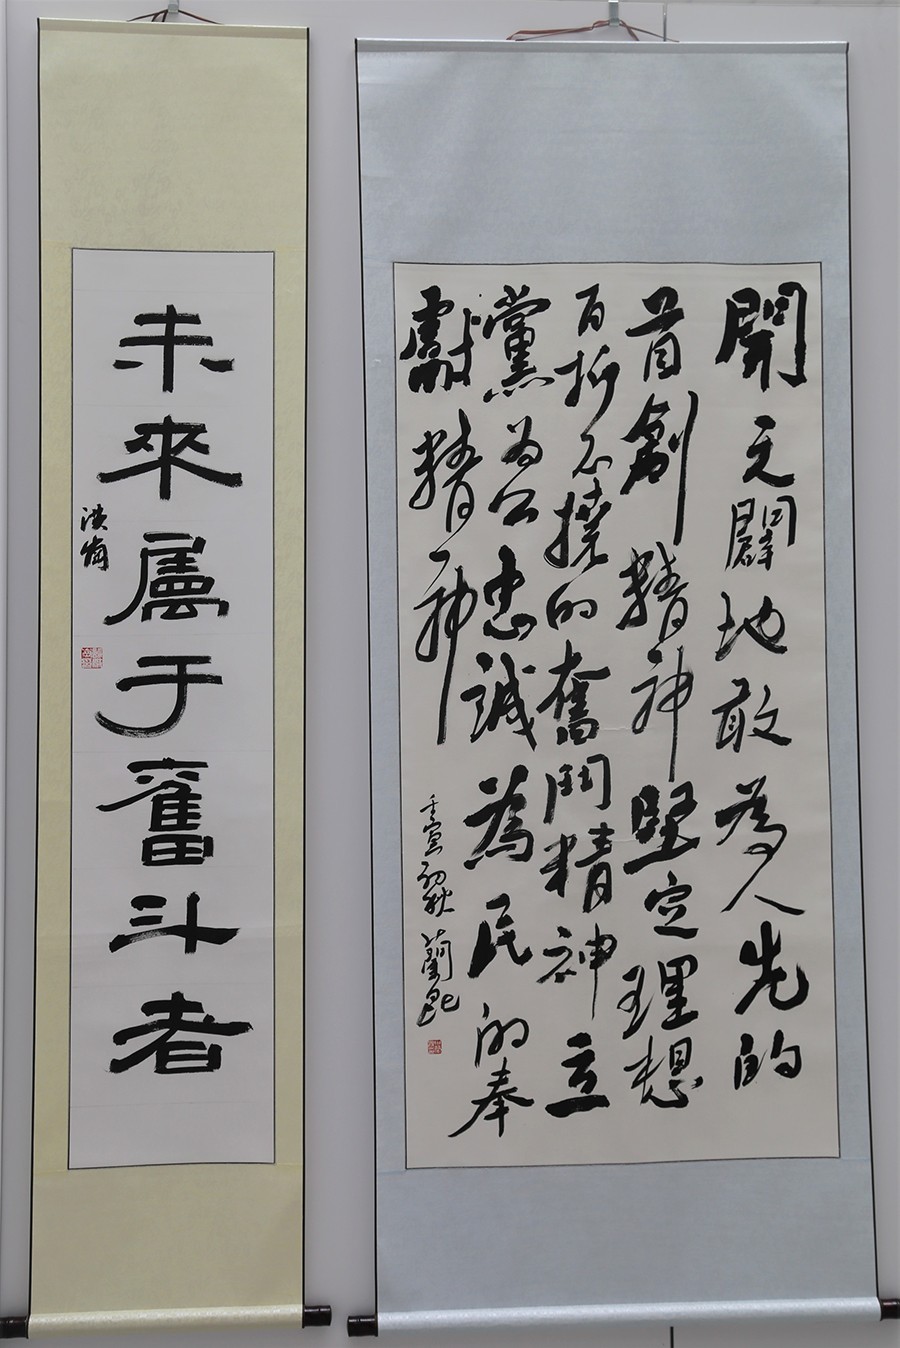 開天闢地敢為人先的
首創精神堅定理想
百折不撓的奮鬥精神立
黨为公忠誠為民的奉
獻精神
壬寅初秋
未來屬于奮斗者